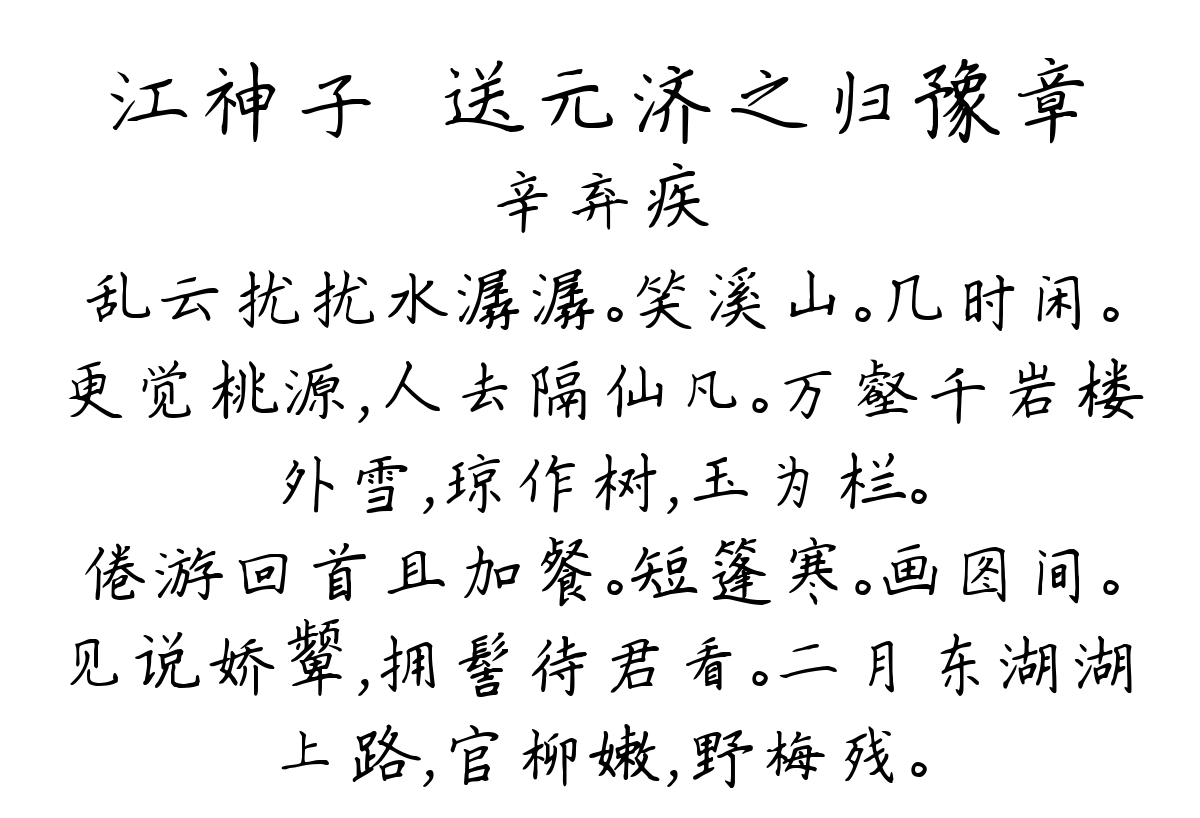 江神子 送元济之归豫章
辛弃疾
乱云扰扰水潺潺。笑溪山。几时闲。
更觉桃源,人去隔仙凡。万壑千岩楼
外雪,琼作树,玉为栏。
倦游回首且加餐。短篷寒。画图间。
见说娇颦,拥髻待君看。二月东湖湖
上路,官柳嫩,野梅残。